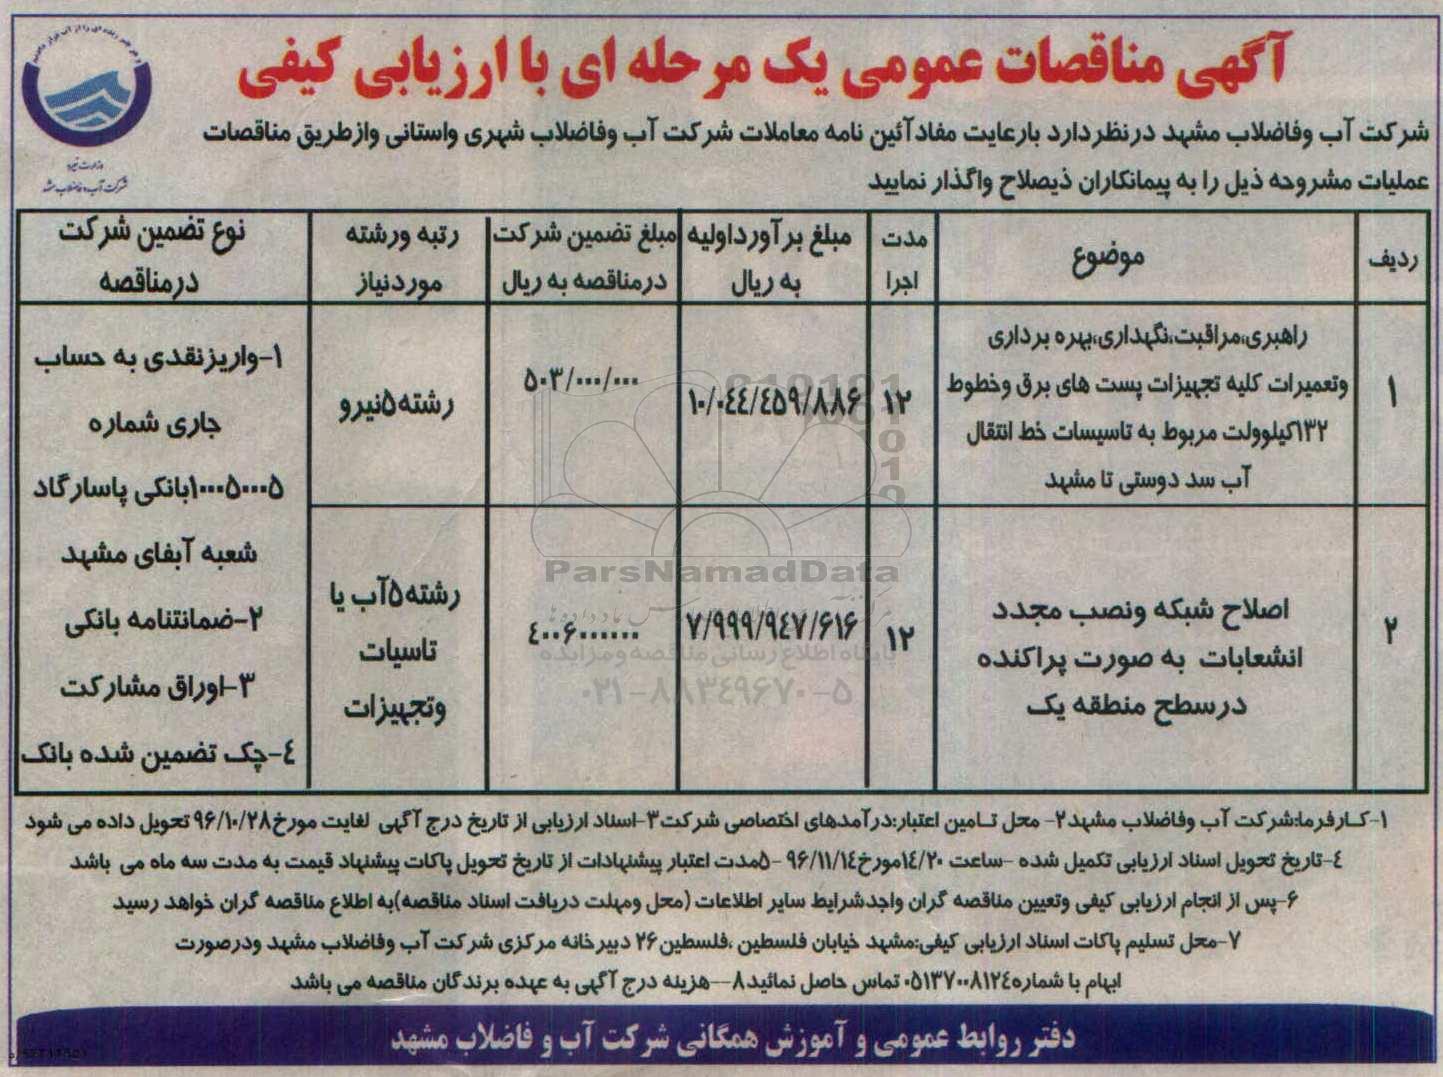 آگهی مناقصات عمومی یک مرحله ای با ارزیابی کیفی
وزارت نیرو
شرکت آب و فاضلاب مشهد
شرکت آب وفاضلاب مشهد درنظردارد بارعایت مفادآئین نامه معاملات شرکت آب وفاضلاب شهری واستانی وازطریق مناقصات
عملیات مشروحه ذیل را به پیمانکاران ذیصلاح واگذار نمایید
ردیف
موضوع
مدت
اجرا
مبلغ برآورداولیه
به ریال
مبلغ تضمین شرکت
درمناقصه به ریال
رتبه ورشته
موردنیاز
نوع تضمین شرکت
درمناقصه
۱
راهبری،مراقبت،نگهداری،بهره برداری
وتعمیرات کلیه تجهیزات پست های برق وخطوط
۱۳۲کیلوولت مربوط به تاسیسات خط انتقال
آب سد دوستی تا مشهد
۱۲
۱۰/۰۴۴/۴۵۹/۸۸۶
۵۰۳/۰۰۰/۰۰۰
رشته۵نیرو
۲
اصلاح شبکه ونصب مجدد
انشعابات به صورت پراکنده
درسطح منطقه یک
۱۲
۷/۹۹۹/۹۴۷/۶۱۶
۴۰۰۶۰۰۰۰۰۰
رشته۵آب یا
تاسیات
وتجهیزات
۱-واریزنقدی به حساب
جاری شماره
۱۰۰۰۵۰۰۰۵بانکی پاسارگاد
شعبه آبفای مشهد
۲-ضمانتنامه بانکی
۳-اوراق مشارکت
۴-چک تضمین شده بانک
ParsNamadData
پایگاه اطلاع رسانی مناقصه و مزایده
۰۲۱-۸۸۳۴۹۶۷۰-۵
۱-کارفرما:شرکت آب وفاضلاب مشهد۲- محل تامین اعتبار:درآمدهای اختصاصی شرکت۳-اسناد ارزیابی از تاریخ درج آگهی لغایت مورخ۹۶/۱۰/۲۸ تحویل داده می شود
۴-تاریخ تحویل اسناد ارزیابی تکمیل شده -ساعت ۱۴/۲۰مورخ۹۶/۱۱/۱۴ -۵مدت اعتبار پیشنهادات از تاریخ تحویل پاکات پیشنهاد قیمت به مدت سه ماه می باشد
۶-پس از انجام ارزیابی کیفی وتعیین مناقصه گران واجدشرایط سایر اطلاعات (محل ومهلت دریافت اسناد مناقصه)به اطلاع مناقصه گران خواهد رسید
۷-محل تسلیم پاکات اسناد ارزیابی کیفی:مشهد خیابان فلسطین ،فلسطین۲۶ دبیرخانه مرکزی شرکت آب وفاضلاب مشهد ودرصورت
ابهام با شماره۰۵۱۳۷۰۰۸۱۲۴ تماس حاصل نمائید۸--هزینه درج آگهی به عهده برندگان مناقصه می باشد
دفتر روابط عمومی و آموزش همگانی شرکت آب و فاضلاب مشهد